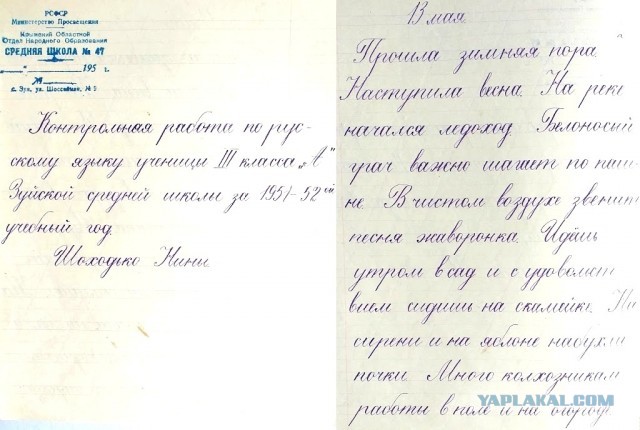 РСФСР
Министерство Просвещения
Крымский Областной
Отдел Народного Образования
СРЕДНЯЯ ШКОЛА № 47
195 г.
№
д. Зуя, ул. Шоссейная, № 5
Контрольная работа по рус-
скому языку ученицы III класса „А"
Зуйской средней школы за 1951-52 ый
учебный год.
Шоходько Нины.
13 мая.
Прошла зимняя пора.
Наступила весна. На реке
начался ледоход. Белоносый
грач важно шагает по паш-
не. В чистом воздухе звенит
песня жаворонка. Идёшь
утром в сад и с удовольст
вием сидишь на скамейке. На
сирени и на яблоне набухли
почки. Много колхозникам
работы в поле и на огороде
YAPLAKAL.COM